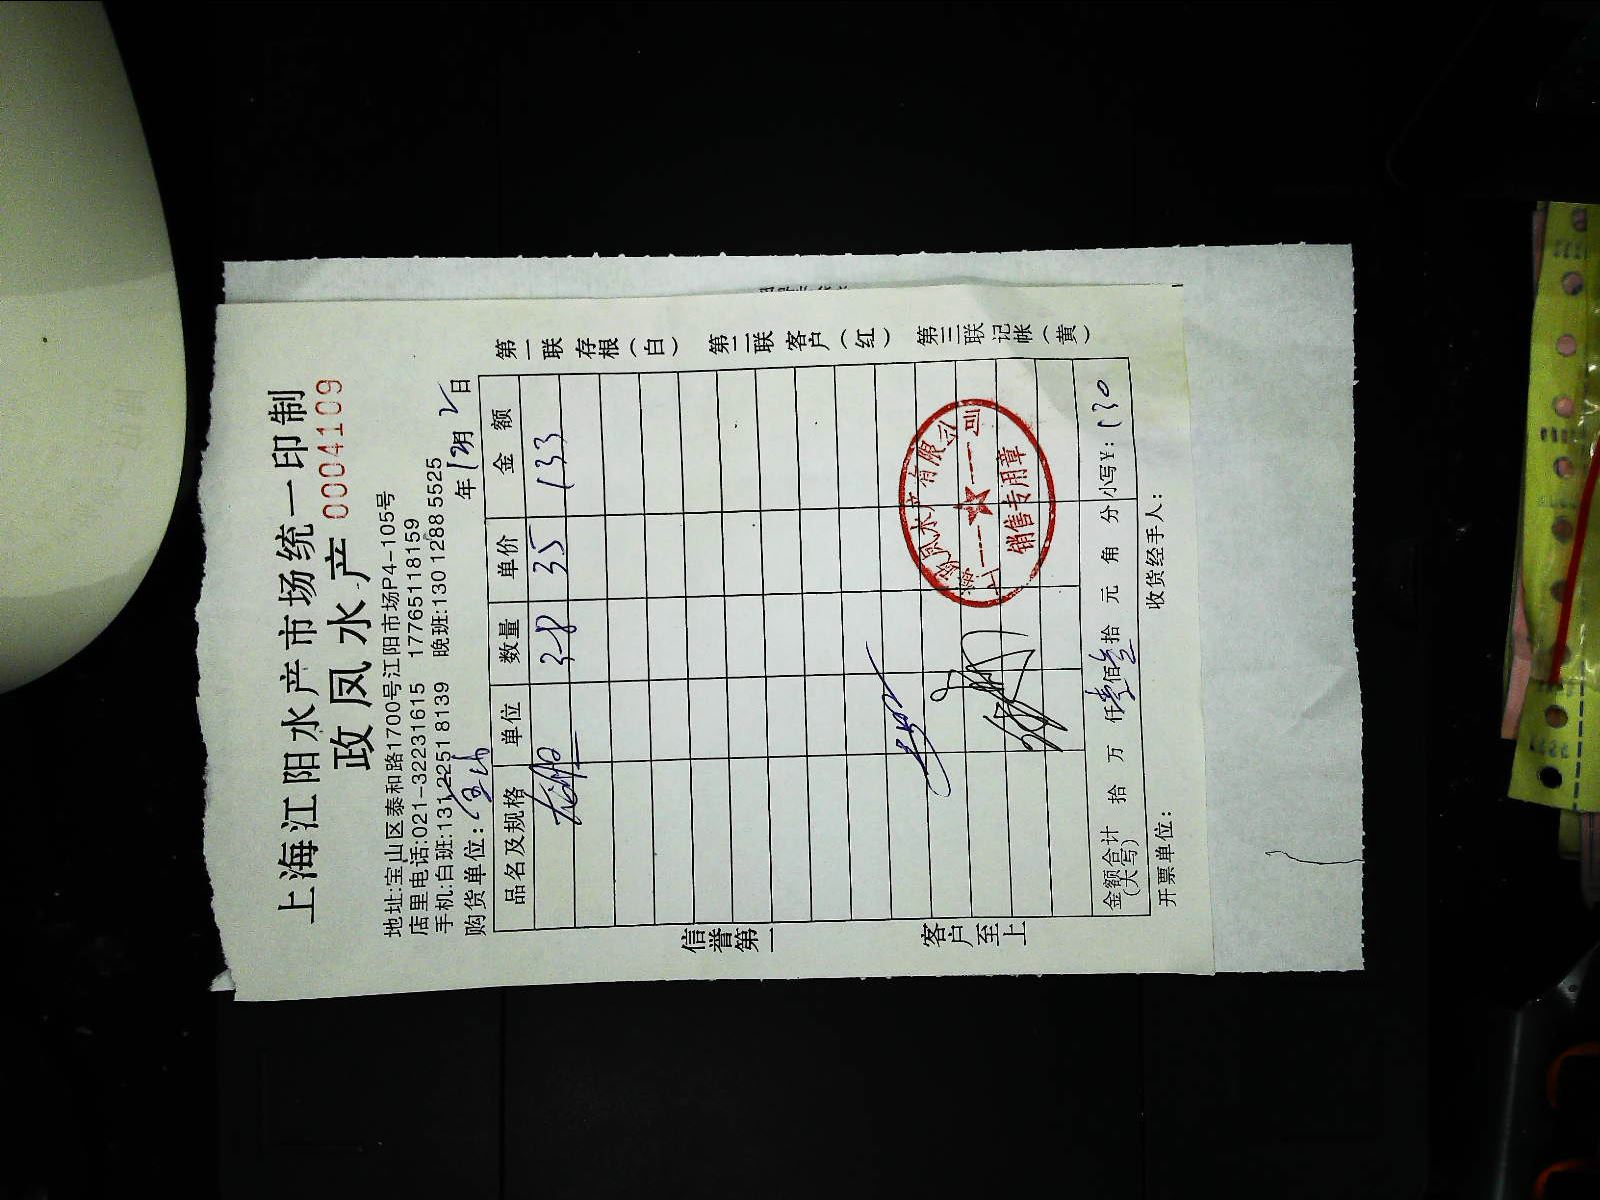 上海江阳水产市场统一印制
政凤水产 0004109
地址:宝山区泰和路1700号江阳市场P4-105号
店里电话:021-32231615 17765118159
手机:白班:131 2251 8139 晚班:130 1288 5525
购货单位: 年12月2日
品名及规格 单位 数量 单价 金额
3.8 35 133
金额合计(大写) 拾 万 仟壹佰叁拾 元 角 分 小写¥: 130
开票单位: 收货经手人:
信誉第一
客户至上
第一联存根(白) 第二联客户(红) 第三联记帐(黄)
上海政凤水产有限公司
销售专用章